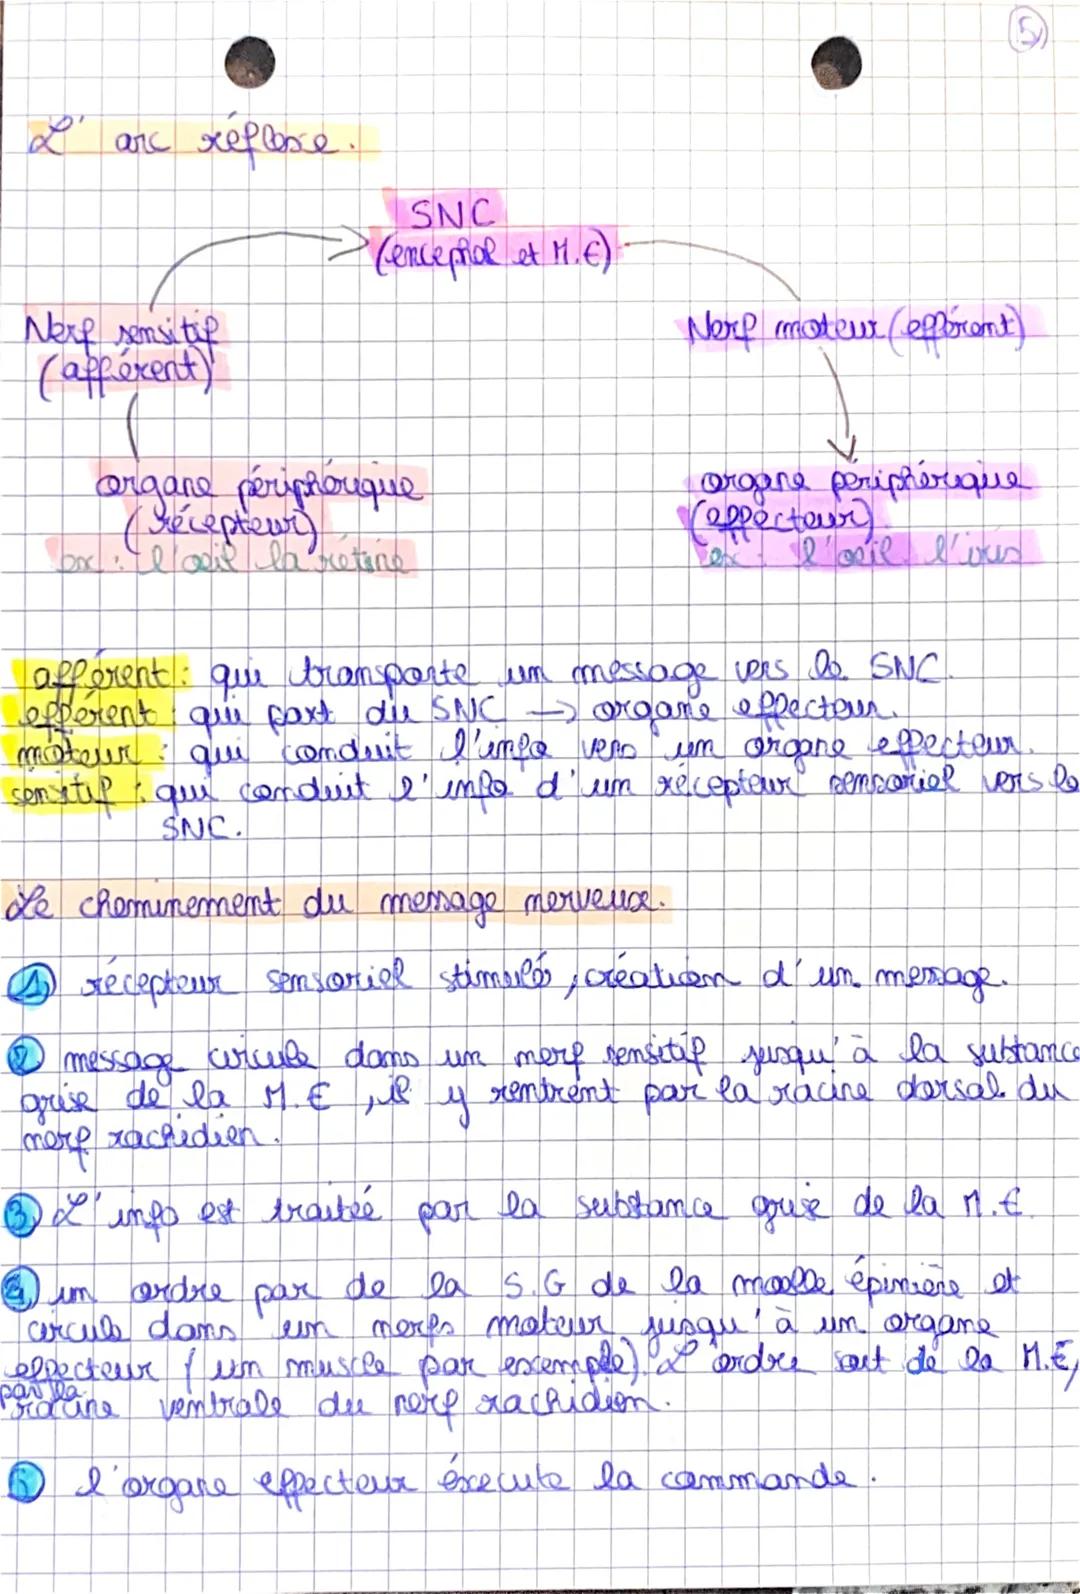 5
L'arc réflexe.
SNC
(encephal et M.E)
Nerf sensitif
(afférent)
Nerf moteur (efférent)
organe périphérique
(récepteur)
ex : l'œil la rétine
organe périphérique
(effecteur)
ex : l'œil l'iris
afférent : qui transporte un message vers le SNC.
efferent : qui part du SNC → organe effecteur.
moteur : qui conduit l'info vers un organe effecteur.
sensitif : qui conduit l'info d'un récepteur sensoriel vers le
SNC.
Le cheminement du message nerveux.
1 récepteur sensoriel stimulés, création d'un message.
2 message circule dans un nerf sensitif jusqu'à la substance
grise de la M.E, il y rentrent par la racine dorsal du
nerf rachidien.
3 L'info est traiteé par la substance grise de la M.E.
4 un ordre par de la S.G de la moelle épinière et
circule dans un nerfs moteur jusqu'à un organe
effecteur (un muscle par exemple). L'ordre sort de la M.E,
par la
racine ventrale du nerf rachidien.
5 l'organe effecteur éxecute la commande.